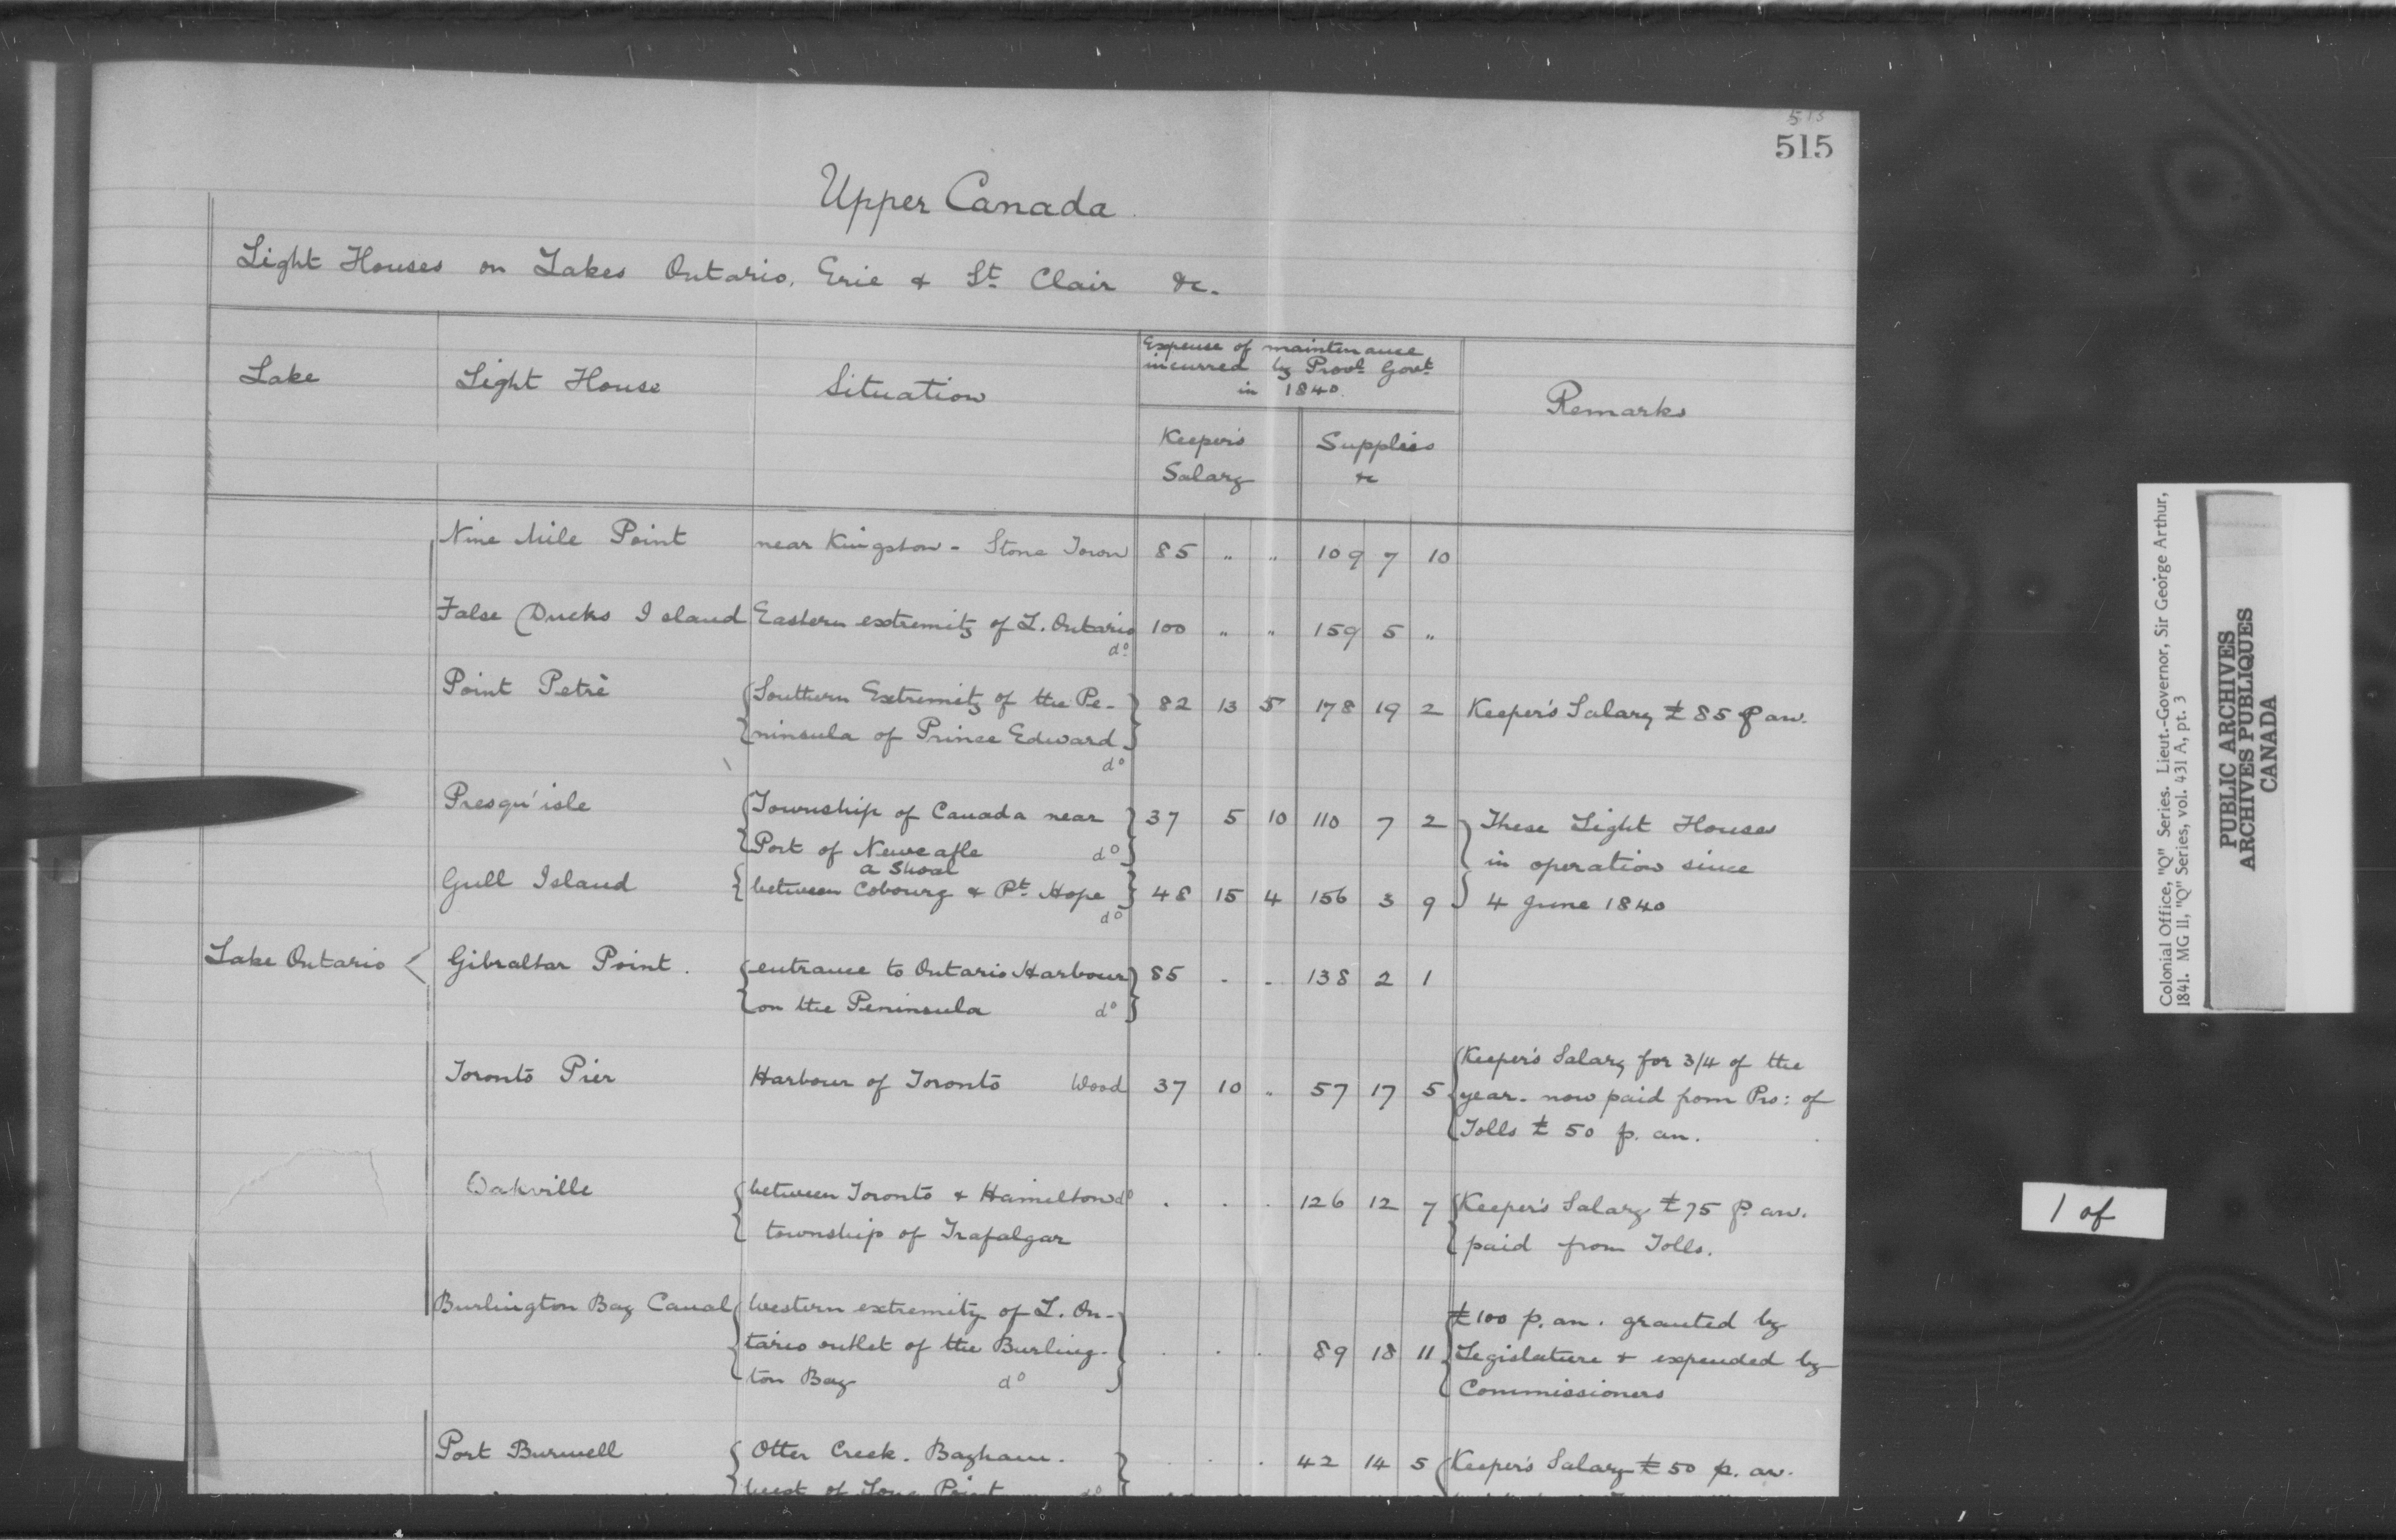 515
515
Upper Canada
Light Houses on Lakes Ontario, Erie & St. Clair &c.
Lake
Light House
Situation
Expense of maintenance
incurred by Provl. Govt.
in 1840.
Keeper's
Salary
Supplies
&c
Remarks
Nine Mile Point near Kingston - Stone Tower 85 " " 109 7 10
False Ducks Island Eastern extremity of L. Ontario do 100 " " 159 5 "
Point Petrè Southern Extremity of the Pe-
ninsula of Prince Edward do 82 13 5 178 19 2 Keeper's Salary £85 p an.
Presqu'isle Township of Canada near
Port of Newcastle do 37 5 10 110 7 2 These Light Houses
in operation since
4 June 1840
Gull Island a Shoal
between Cobourg & Pt. Hope do 48 15 4 156 3 9
Lake Ontario
Gibraltar Point. entrance to Ontario Harbour
on the Peninsula do 85 - - 138 2 1
Toronto Pier Harbour of Toronto Wood 37 10 " 57 17 5 Keeper's Salary for 3/4 of the
year - now paid from Pro: of
Tolls £50 p. an.
Oakville between Toronto & Hamilton do
township of Trafalgar . . . 126 12 7 Keeper's Salary £75 p. an.
paid from Tolls.
Burlington Bay Canal Western extremity of L. On-
tario outlet of the Burling-
ton Bay do . . . 89 18 11 £100 p. an. granted by
Legislature & expended by
Commissioners
Port Burwell Otter Creek. Bayham.
West of Long Point do . . . 42 14 5 Keeper's Salary £50 p. an.
Colonial Office, "Q" Series. Lieut.-Governor, Sir George Arthur,
1841. MG 11, "Q" Series, vol. 431 A, pt. 3
PUBLIC ARCHIVES
ARCHIVES PUBLIQUES
CANADA
1 of